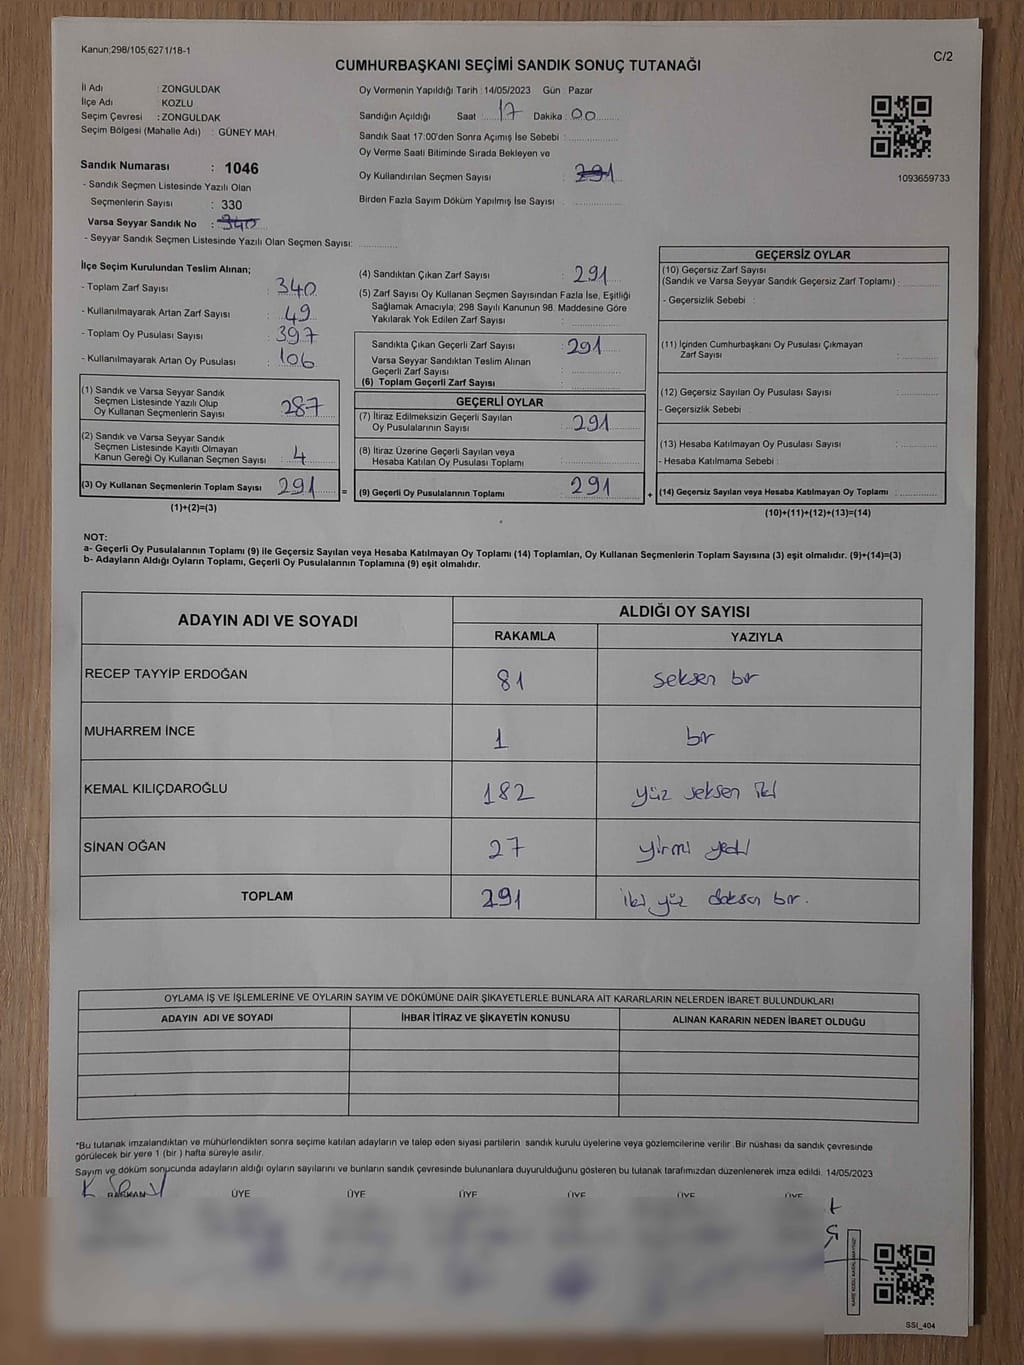 Kanun:298/105,6271/18-1
C/2
CUMHURBAŞKANI SEÇİMİ SANDIK SONUÇ TUTANAĞI
İl Adı : ZONGULDAK
İlçe Adı : KOZLU
Seçim Çevresi : ZONGULDAK
Seçim Bölgesi (Mahalle Adı) : GÜNEY MAH.
Sandık Numarası : 1046
- Sandık Seçmen Listesinde Yazılı Olan
Seçmenlerin Sayısı : 330
Varsa Seyyar Sandık No : 340
- Seyyar Sandık Seçmen Listesinde Yazılı Olan Seçmen Sayısı:
Oy Vermenin Yapıldığı Tarih : 14/05/2023 Gün : Pazar
Sandığın Açıldığı Saat 17 Dakika : 00
Sandık Saat 17:00'den Sonra Açımış İse Sebebi :
Oy Verme Saati Bitiminde Sırada Bekleyen ve
Oy Kullandırılan Seçmen Sayısı : 291
Birden Fazla Sayım Döküm Yapılmış İse Sayısı :
1093659733
İlçe Seçim Kurulundan Teslim Alınan;
- Toplam Zarf Sayısı : 340
- Kullanılmayarak Artan Zarf Sayısı : 49
- Toplam Oy Pusulası Sayısı : 397
- Kullanılmayarak Artan Oy Pusulası : 106
(1) Sandık ve Varsa Seyyar Sandık
Seçmen Listesinde Yazılı Olup
Oy Kullanan Seçmenlerin Sayısı 287
(2) Sandık ve Varsa Seyyar Sandık
Seçmen Listesinde Kayıtlı Olmayan
Kanun Gereği Oy Kullanan Seçmen Sayısı : 4
(3) Oy Kullanan Seçmenlerin Toplam Sayısı 291 =
(1)+(2)=(3)
(4) Sandıktan Çıkan Zarf Sayısı : 291
(5) Zarf Sayısı Oy Kullanan Seçmen Sayısından Fazla İse, Eşitliği
Sağlamak Amacıyla; 298 Sayılı Kanunun 98. Maddesine Göre
Yakılarak Yok Edilen Zarf Sayısı :
Sandıkta Çıkan Geçerli Zarf Sayısı : 291
Varsa Seyyar Sandıktan Teslim Alınan
Geçerli Zarf Sayısı :
(6) Toplam Geçerli Zarf Sayısı :
GEÇERLİ OYLAR
(7) İtiraz Edilmeksizin Geçerli Sayılan
Oy Pusulalarının Sayısı : 291
(8) İtiraz Üzerine Geçerli Sayılan veya
Hesaba Katılan Oy Pusulası Toplamı :
(9) Geçerli Oy Pusulalarının Toplamı : 291 +
GEÇERSİZ OYLAR
(10) Geçersiz Zarf Sayısı
(Sandık ve Varsa Seyyar Sandık Geçersiz Zarf Toplamı) :
- Geçersizlik Sebebi :
(11) İçinden Cumhurbaşkanı Oy Pusulası Çıkmayan
Zarf Sayısı :
(12) Geçersiz Sayılan Oy Pusulası Sayısı :
- Geçersizlik Sebebi :
(13) Hesaba Katılmayan Oy Pusulası Sayısı :
- Hesaba Katılmama Sebebi :
(14) Geçersiz Sayılan veya Hesaba Katılmayan Oy Toplamı :
(10)+(11)+(12)+(13)=(14)
NOT:
a- Geçerli Oy Pusulalarının Toplamı (9) ile Geçersiz Sayılan veya Hesaba Katılmayan Oy Toplamı (14) Toplamları, Oy Kullanan Seçmenlerin Toplam Sayısına (3) eşit olmalıdır. (9)+(14)=(3)
b- Adayların Aldığı Oyların Toplamı, Geçerli Oy Pusulalarının Toplamına (9) eşit olmalıdır.
ADAYIN ADI VE SOYADI
ALDIĞI OY SAYISI
RAKAMLA YAZIYLA
RECEP TAYYİP ERDOĞAN 81 seksen bir
MUHARREM İNCE 1 bir
KEMAL KILIÇDAROĞLU 182 yüz seksen iki
SİNAN OĞAN 27 yirmi yedi
TOPLAM 291 iki yüz doksan bir.
OYLAMA İŞ VE İŞLEMLERİNE VE OYLARIN SAYIM VE DÖKÜMÜNE DAİR ŞİKAYETLERLE BUNLARA AİT KARARLARIN NELERDEN İBARET BULUNDUKLARI
ADAYIN ADI VE SOYADI İHBAR İTİRAZ VE ŞİKAYETİN KONUSU ALINAN KARARIN NEDEN İBARET OLDUĞU
*Bu tutanak imzalandıktan ve mühürlendikten sonra seçime katılan adayların ve talep eden siyasi partilerin sandık kurulu üyelerine veya gözlemcilerine verilir. Bir nüshası da sandık çevresinde
görülecek bir yere 1 (bir ) hafta süreyle asılır.
Sayım ve döküm sonucunda adayların aldığı oyların sayılarını ve bunların sandık çevresinde bulunanlara duyurulduğunu gösteren bu tutanak tarafımızdan düzenlenerek imza edildi. 14/05/2023
BAŞKAN ÜYE ÜYE ÜYE ÜYE ÜYE ÜYE
SSI_404